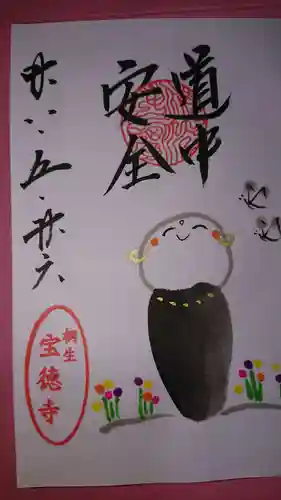 道中
安全
廿八・五・廿六
桐生
宝徳寺